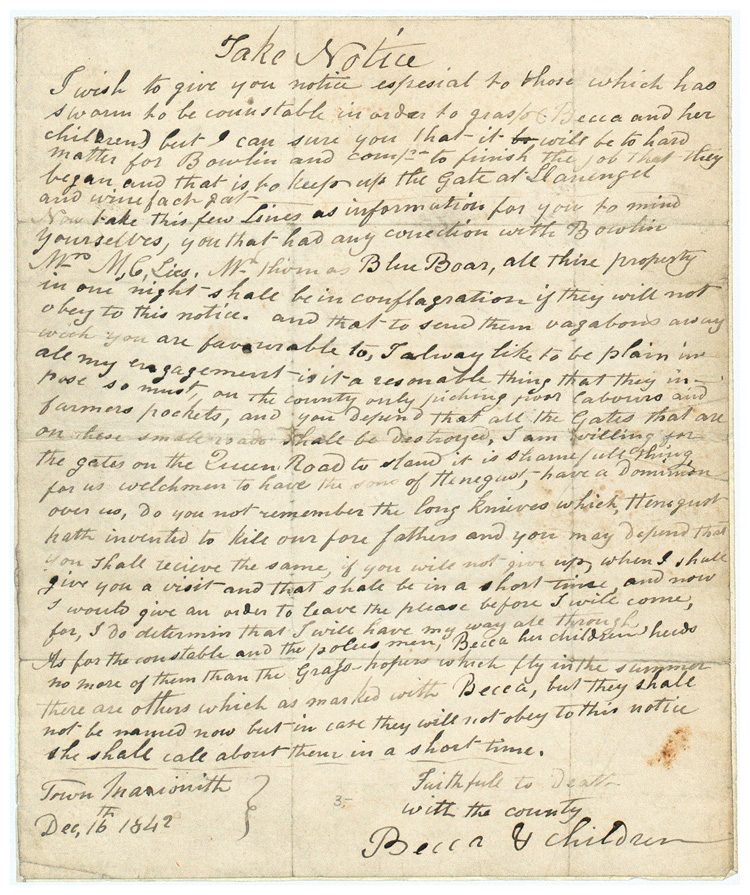 Take Notice
I wish to give you notice espesial to those which has
sworn to be counstable in order to grasp (Becca and her
children) but I can sure you that it be will be to hard
matter for Bowlin and comp.y to finish the job that they
began and that is to keep up the Gate at Llanengel
and wine fact gat
Now take this few Lines as information for you to mind
yourselves, you that had any conection with Bowlin
Mrs McLies, Mr Thomas Blue Boar, all thire property
in one night shall be in conflagration if they will not
obey to this notice. and that to send them vagabons away
wich you are favourable to, I alway like to be plain in
all my engagement is it a resonable thing that they in-
pose so must, on the county only picking poor labours and
farmers pockets, and you depend that all the Gates that are
on these small roads shall be destroyed, I am willing for
the gates on the Queen Road to stand it is shamefull thing
for us welchmen to have the sons of Henegust, have a Dominion
over us, do you not remember the long knieves which Henegust
hath invented to kill our fore fathers and you may depend that
you shall recieve the same, if you will not give up when I shall
give you a visit and that shall be in a short time and now
I would give an order to leave the please before I will come,
for, I do determin that I will have my way all through
As for the constable and the polies men, Becca her children heeds
no more of them than the Grass hopers which fly in the summer
there are others which as marked with Becca, but they shall
not be named now but in case they will not obey to this notice
she shall call about them in a short time.
Town Inarionith
Dec, 16th 1842
3
Faithfull to Death
with the county
Becca & children